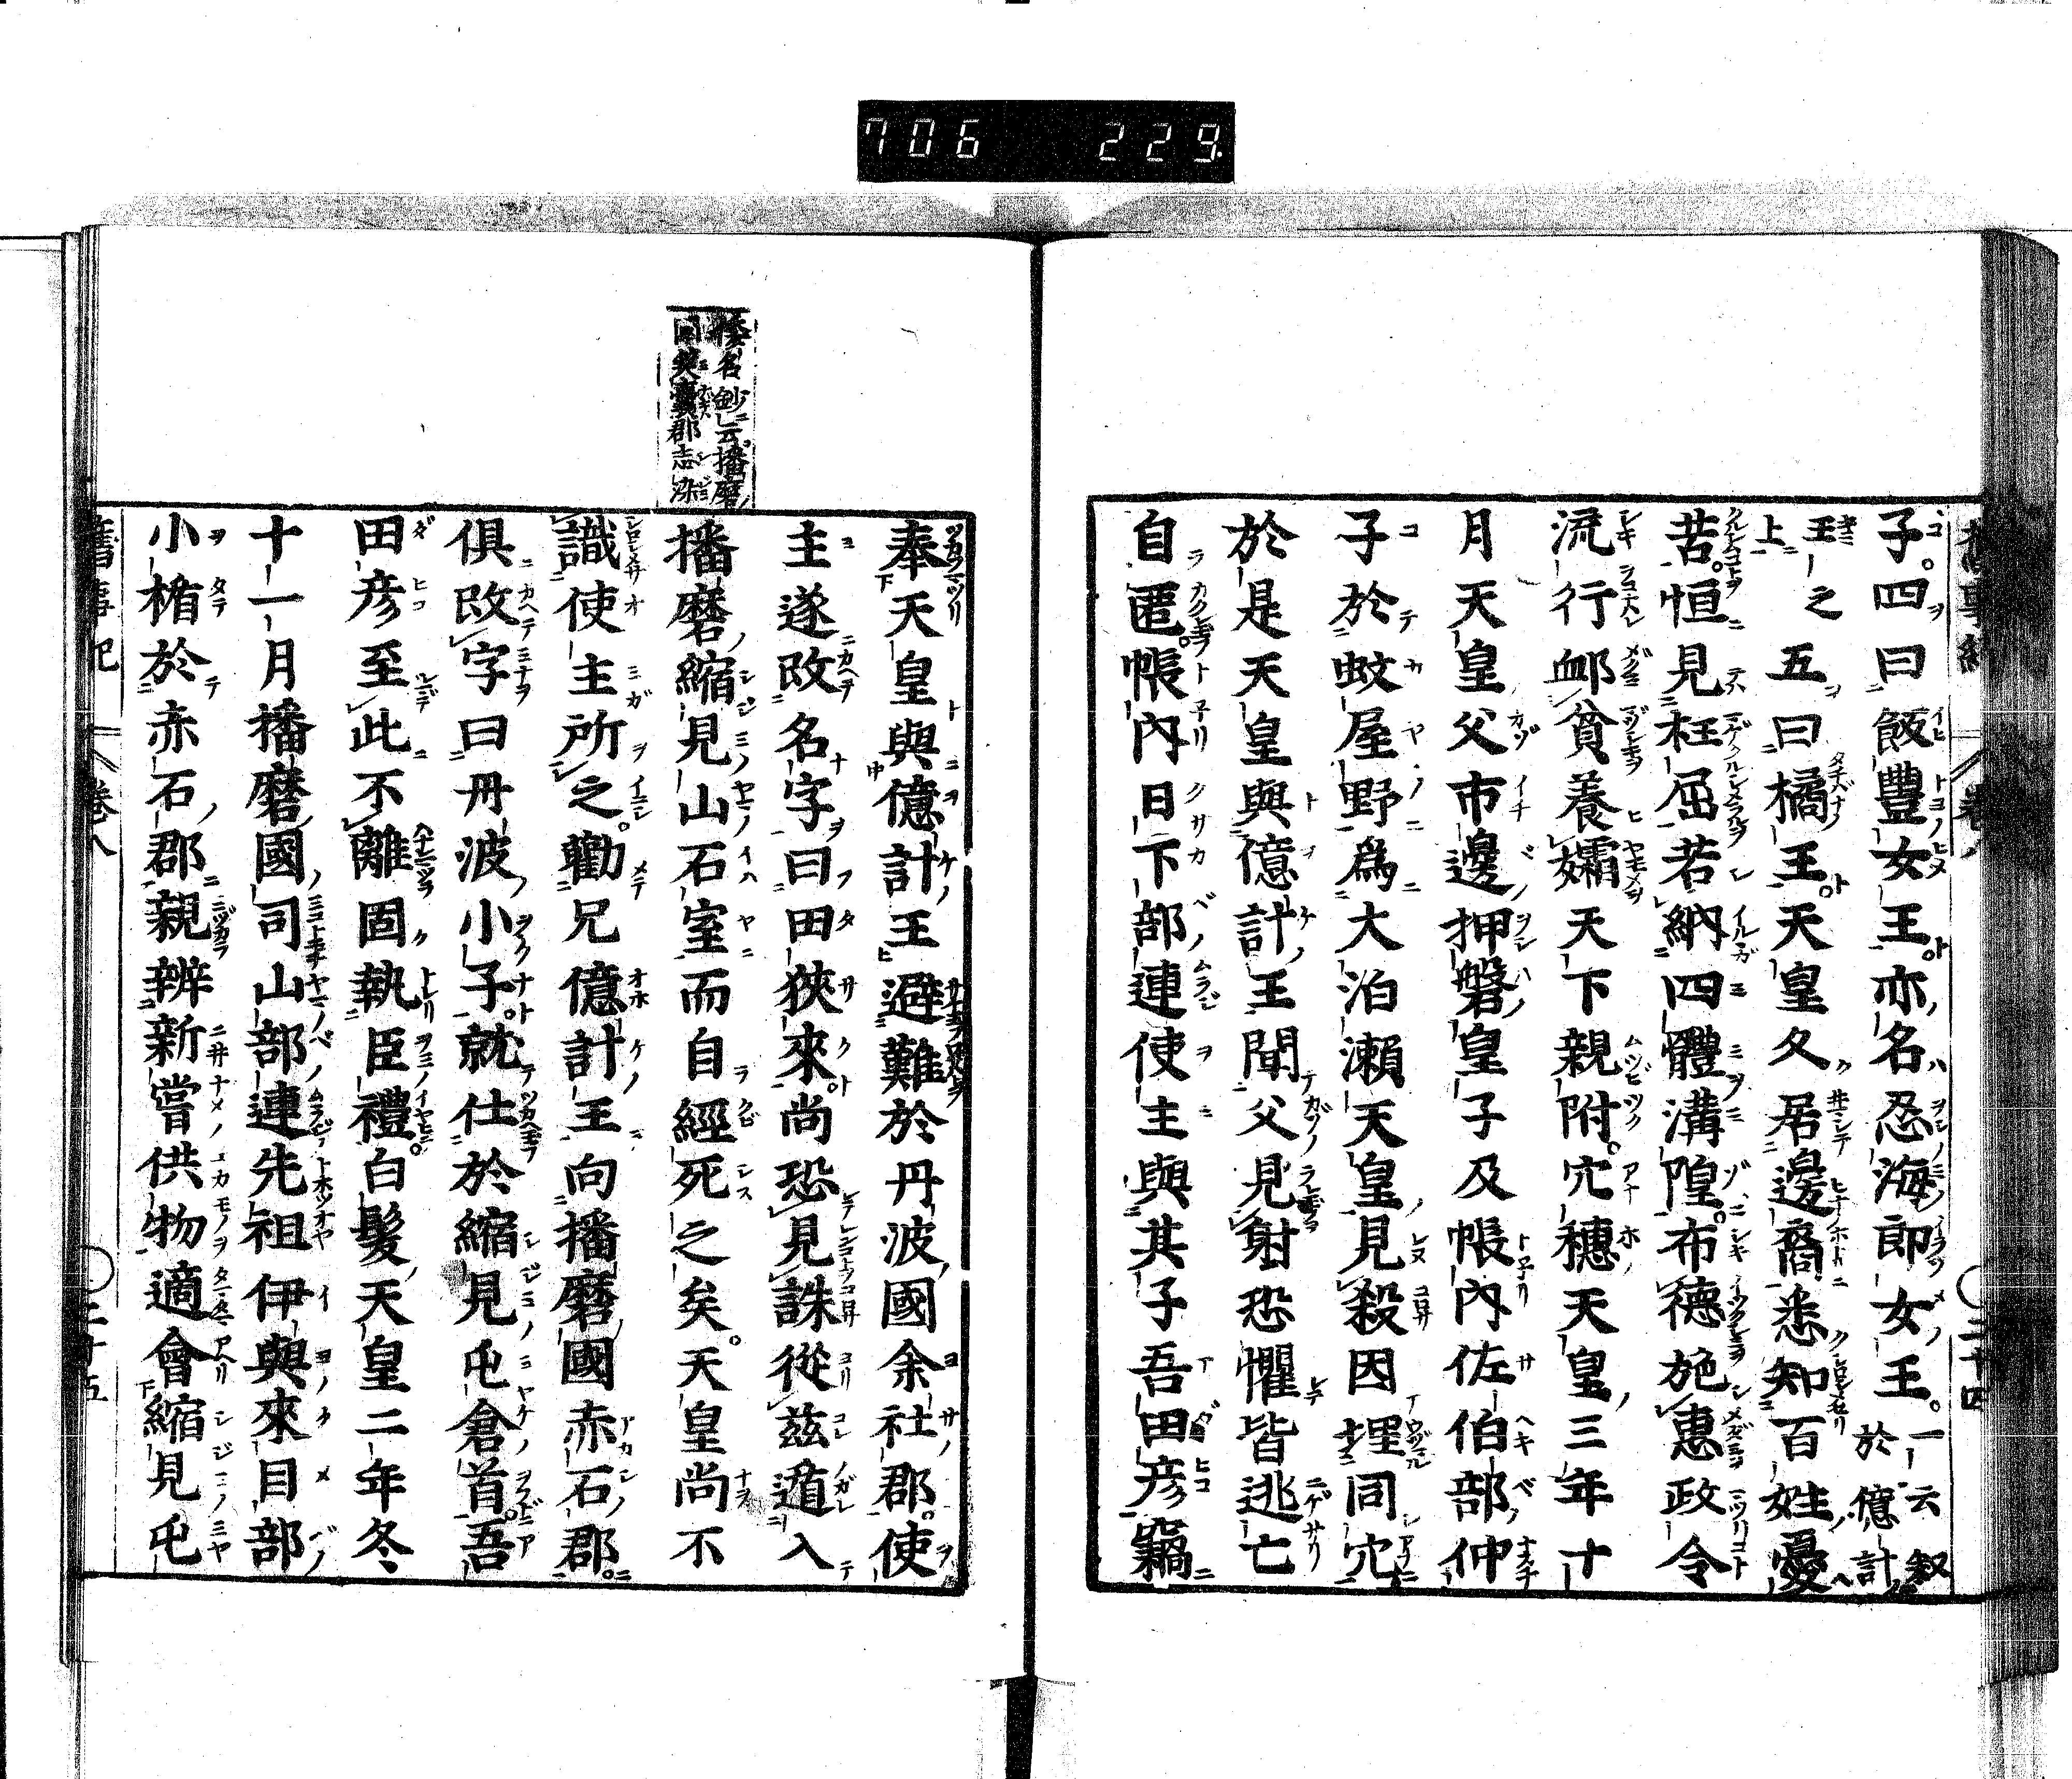 706 229
子。四曰飯豐女王。亦名忍海郎女王。一云叙
於億計
王之
上
五曰橘王。天皇久居邊裔悉知百姓憂
苦。恒見枉屈若納四體溝隍。布德施惠政令
流行卹貧養孀天下親附。穴穗天皇三年十
月天皇父市邊押磐皇子及帳內佐伯部仲
子於蚊屋野爲大泊瀨天皇見殺因埋同穴
於是天皇與億計王聞父見射恐懼皆逃亡
自匿。帳內日下部連使主與其子吾田彦竊
倭名鈔云。播磨
國美囊郡志染
奉天皇與億計王避難於丹波國余社郡。使
主遂改名字曰田狹來。尚恐見誅從茲遁入
播磨縮見山石室而自經死之矣。天皇尚不
識使主所之。勸兄億計王向播磨國赤石郡。
俱改字曰丹波小子。就仕於縮見屯倉首。吾
田彦至此不離固執臣禮。白髮天皇二年冬
十一月播磨國司山部連先祖伊與來目部
小楯於赤石郡親辨新嘗供物適會縮見屯
舊事紀 卷八 二十五